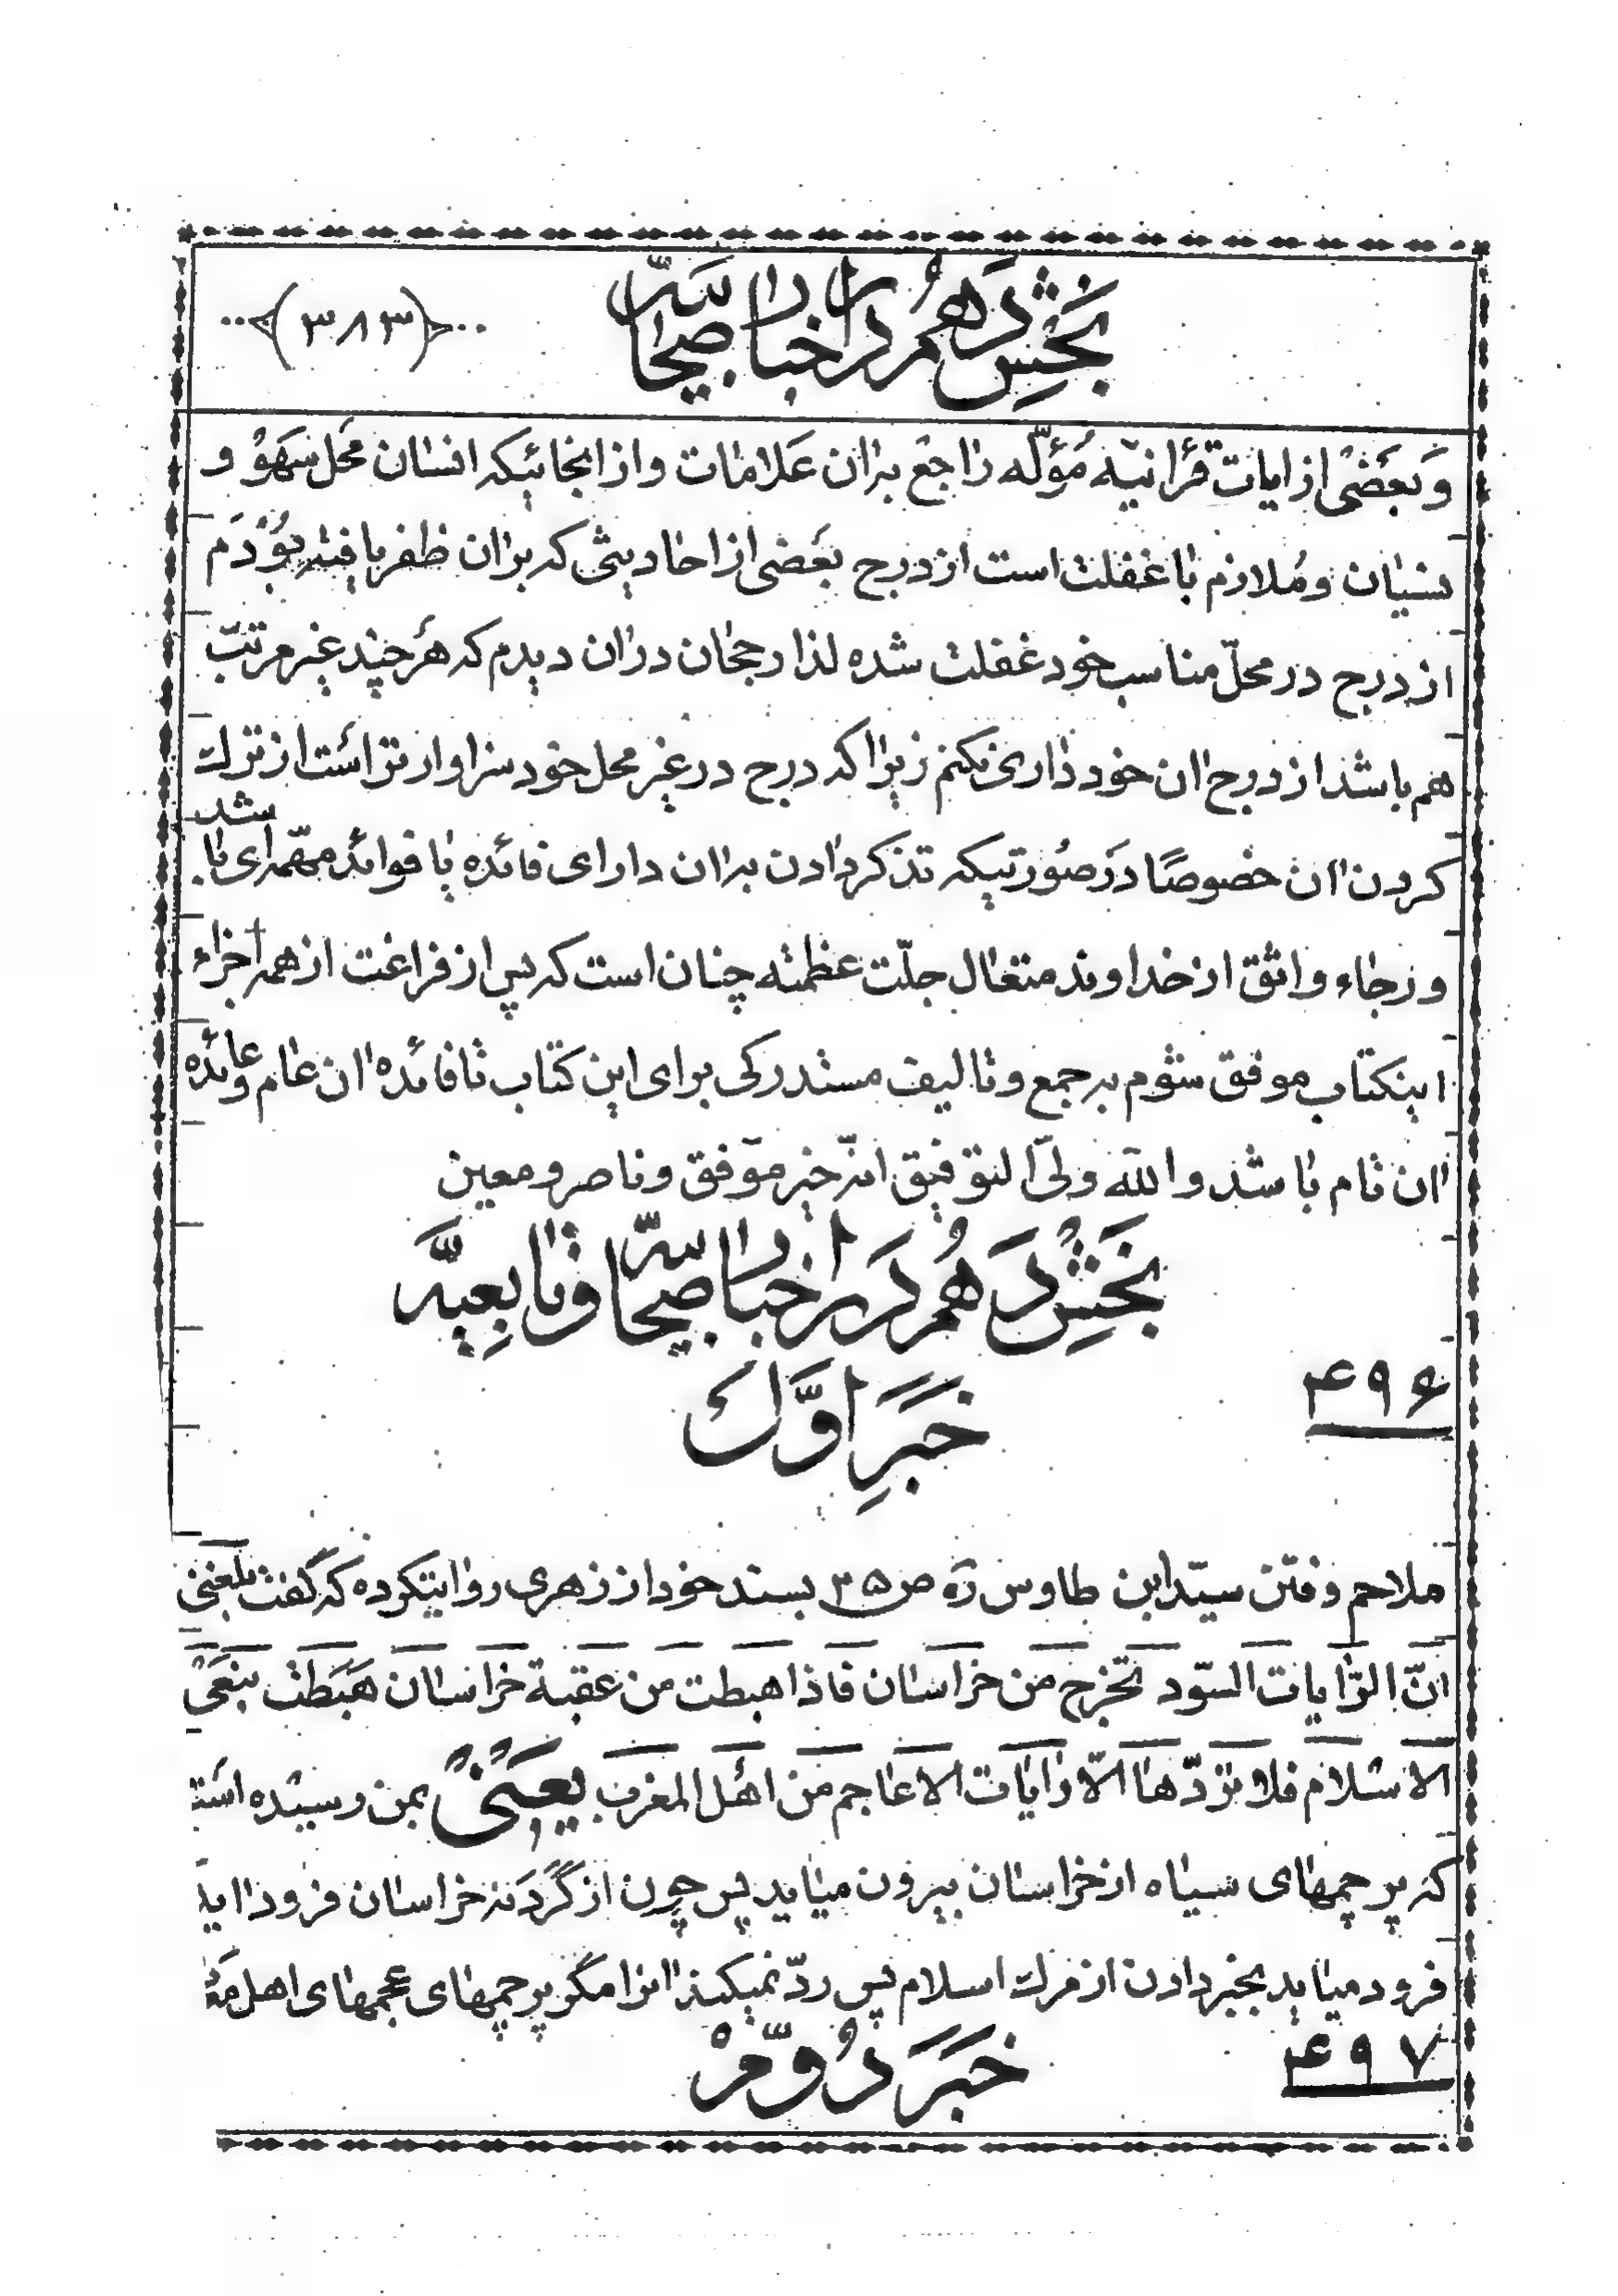 بخش دهم در اخبار صحابه
(۳۸۳)
و بعضی از ایات قرانیّه مؤلّه راجع بدان علامات و از انجائیکه انسان محل سهو و
نسیان و ملازم با غفلت است از درج بعضی از احادیثی که بر ان ظفر یافته بودم
از درج در محلّ مناسب خود غفلت شده لذا رجحان در ان دیدم که هر چند غیر مرتّب
هم باشد از درج ان خودداری نکنم زیرا که درج در غیر محل خود سزاوارتر است از ترک
کردن ان خصوصًا در صورتیکه تذکر دادن بدان دارای فائده یا فوائد مهمّه‌ای باشد
و رجاء واثق از خداوند متعال جلّت عظمته چنان است که پس از فراغت از همه اجزاء
اینکتاب موفق شوم بر جمع و تالیف مستدرکی برای این کتاب تا فائده ان عام و عائده
ان تام باشد والله ولیّ التوفیق انّه خیر موفق و ناصر و معین
بخش دهم در اخبار صحابه و تابعیه
۴۹۶
خبر اوّل
ملاحم و فتن سیّد ابن طاوس ره ص ۳۵ بسند خود از زهری روایتکرده که گفت بلغنی
انّ الرّایات السّود تخرج من خراسان فاذا هبطت من عقبة خراسان هبطت بنعی
الاسلام فلا تردّها الّا رایات الاعاجم من اهل المغرب یعنی بمن رسیده است
که پرچمهای سیاه از خراسان بیرون میاید پس چون از گردنه خراسان فرود اید
فرود میاید بخبر دادن از مرك اسلام پس ردّ نمیکند انرا مگر پرچمهای عجمهای اهل
۴۹۷
خبر دوّم